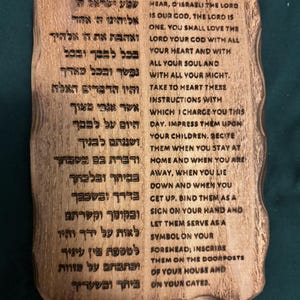 שמע ישראל
אלוהינו ה' אחד
ואהבת את ה' אלהיך
בכל לבבך ובכל
נפשך ובכל מאדך
והיו הדברים האלה
אשר אנכי מצוך
היום על לבבך
ושננתם לבניך
ודברת בם בשבתך
בביתך ובלכתך
בדרך ובשכבך
ובקומך וקשרתם
לאות על ידך והיו
לטטפת בין עיניך
וכתבתם על מזוזת
ביתך ובשעריך
HEAR, O'ISRAEL! THE LORD
IS OUR GOD, THE LORD IS
ONE. YOU SHALL LOVE THE
LORD YOUR GOD WITH ALL
YOUR HEART AND WITH
ALL YOUR SOUL AND
WITH ALL YOUR MIGHT.
TAKE TO HEART THESE
INSTRUCTIONS WITH
WHICH I CHARGE YOU THIS
DAY. IMPRESS THEM UPON
YOUR CHILDREN. RECITE
THEM WHEN YOU STAY AT
HOME AND WHEN YOU ARE
AWAY, WHEN YOU LIE
DOWN AND WHEN YOU
GET UP. BIND THEM AS A
SIGN ON YOUR HAND AND
LET THEM SERVE AS A
SYMBOL ON YOUR
FOREHEAD; INSCRIBE
THEM ON THE DOORPOSTS
OF YOUR HOUSE AND
ON YOUR GATES.